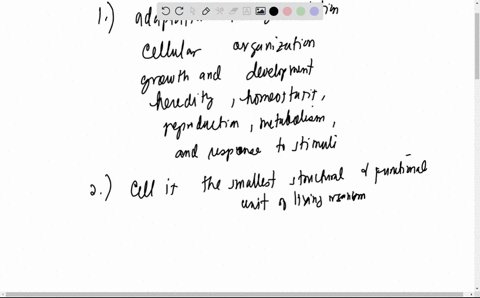 1.) adaptation
cellular organization
growth and development
heredity, homeostasis,
reproduction, metabolism,
and response to stimuli
2.) cell is the smallest structural & functional
unit of living